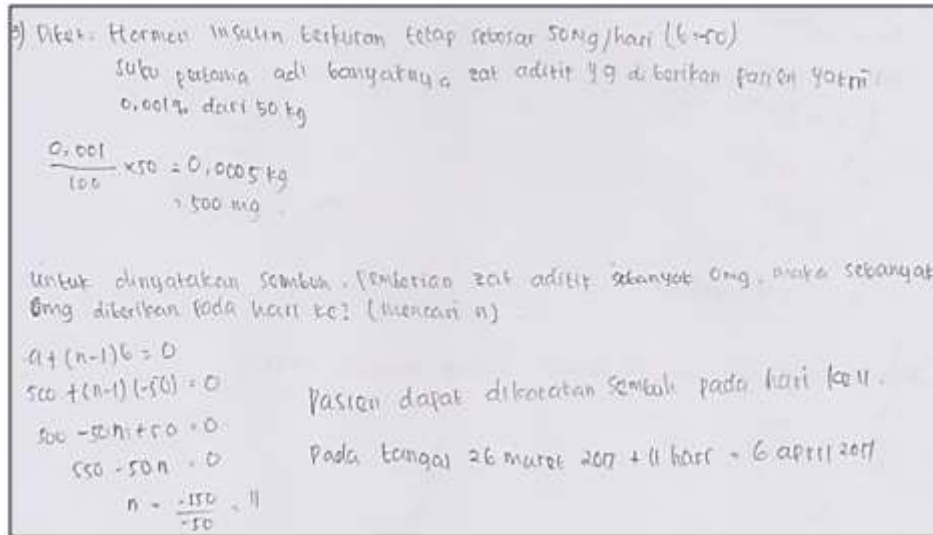 3) Diket: Hormon insulin berkuran tetap sebesar 50mg/hari (b=-50)
Suku pertama adl banyaknya zat aditif yg diberikan pasien yakni
0,001% dari 50 kg
0,001/100 x50 = 0,0005 kg
= 500 mg.
Untuk dinyatakan sembuh. Pemberian zat aditif sebanyak 0mg. maka sebanyak
0mg diberikan pada hari ke? (mencari n)
a+(n-1)b = 0
500 +(n-1)(-50) = 0
500 -50n+50 = 0
550 -50n = 0
n = -550/-50 = 11
Pasien dapat dikatakan sembuh pada hari ke 11.
Pada tanggal 26 maret 2017 + 11 hari = 6 april 2017